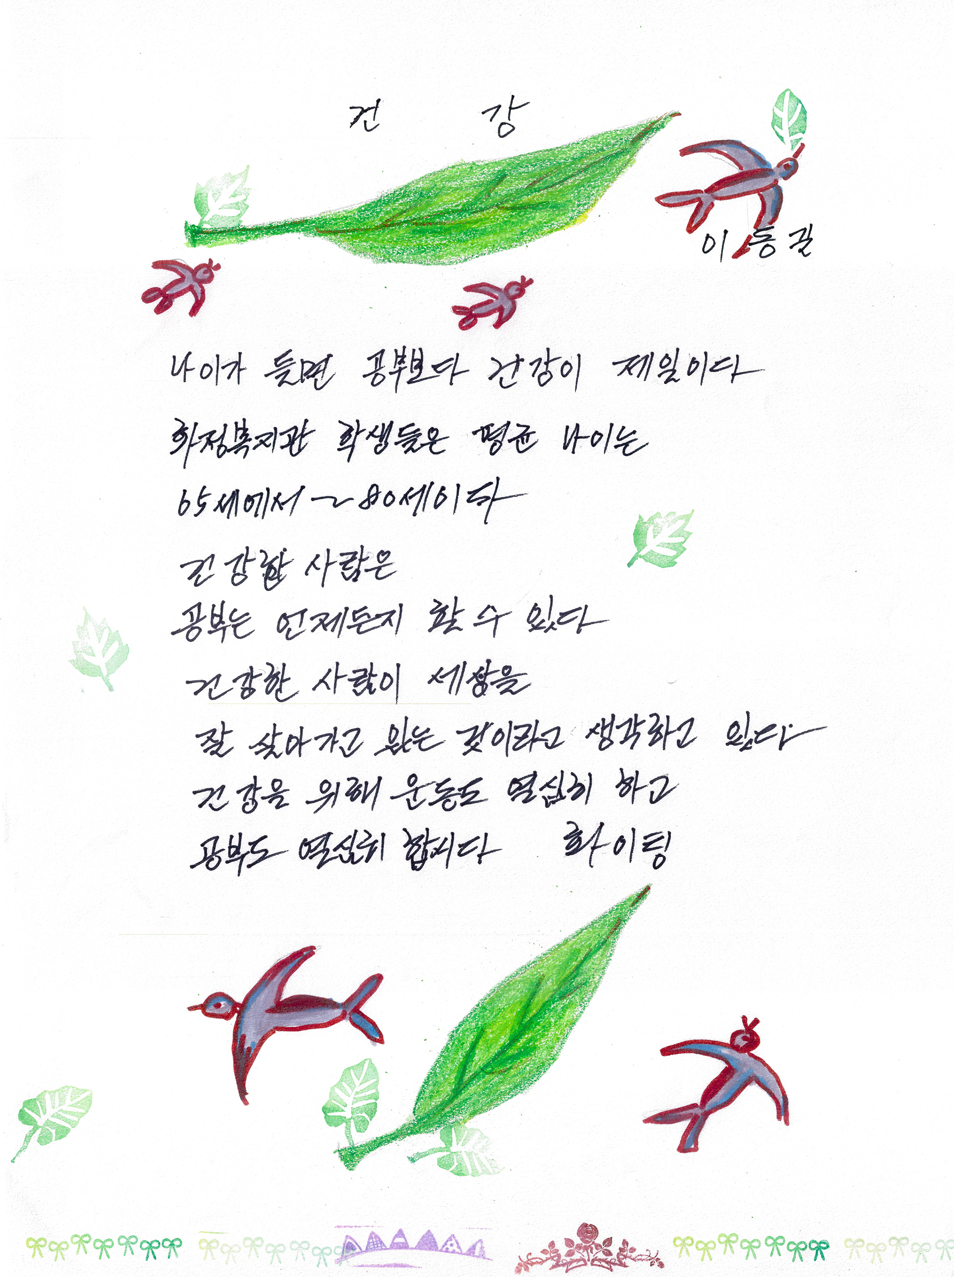 건 강
이 동 길
나이가 들면 공부보다 건강이 제일이다
화정복지관 학생들은 평균 나이는
65세에서 ~ 80세이다
건강한 사람은
공부는 언제든지 할 수 있다
건강한 사람이 세상을
잘 살아가고 있는 것이라고 생각하고 있다
건강을 위해 운동도 열심히 하고
공부도 열심히 합시다 화이팅